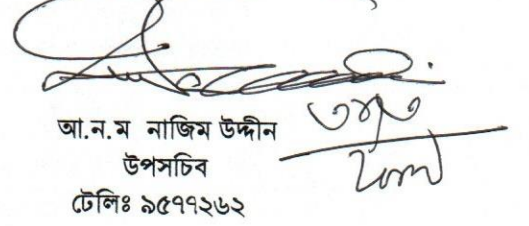 আ.ন.ম নাজিম উদ্দীন
উপসচিব
টেলিঃ ৯৫৭৭২৬২